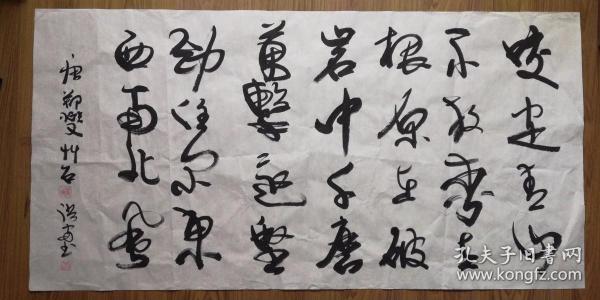 咬定青山
不放松立
根原在破
岩中千磨
萬擊還堅
劲任尔东
西南北風
郑燮竹石
孔夫子旧书网
www.kongfz.com